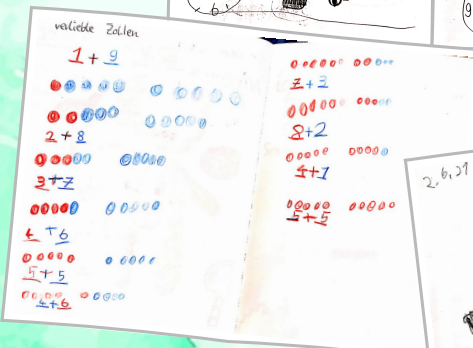 verliebte Zahlen
1 + 9
2 + 8
3 + 7
4 + 6
5 + 5
4 + 6
7 + 3
8 + 2
5 + 5
2, 6, 21